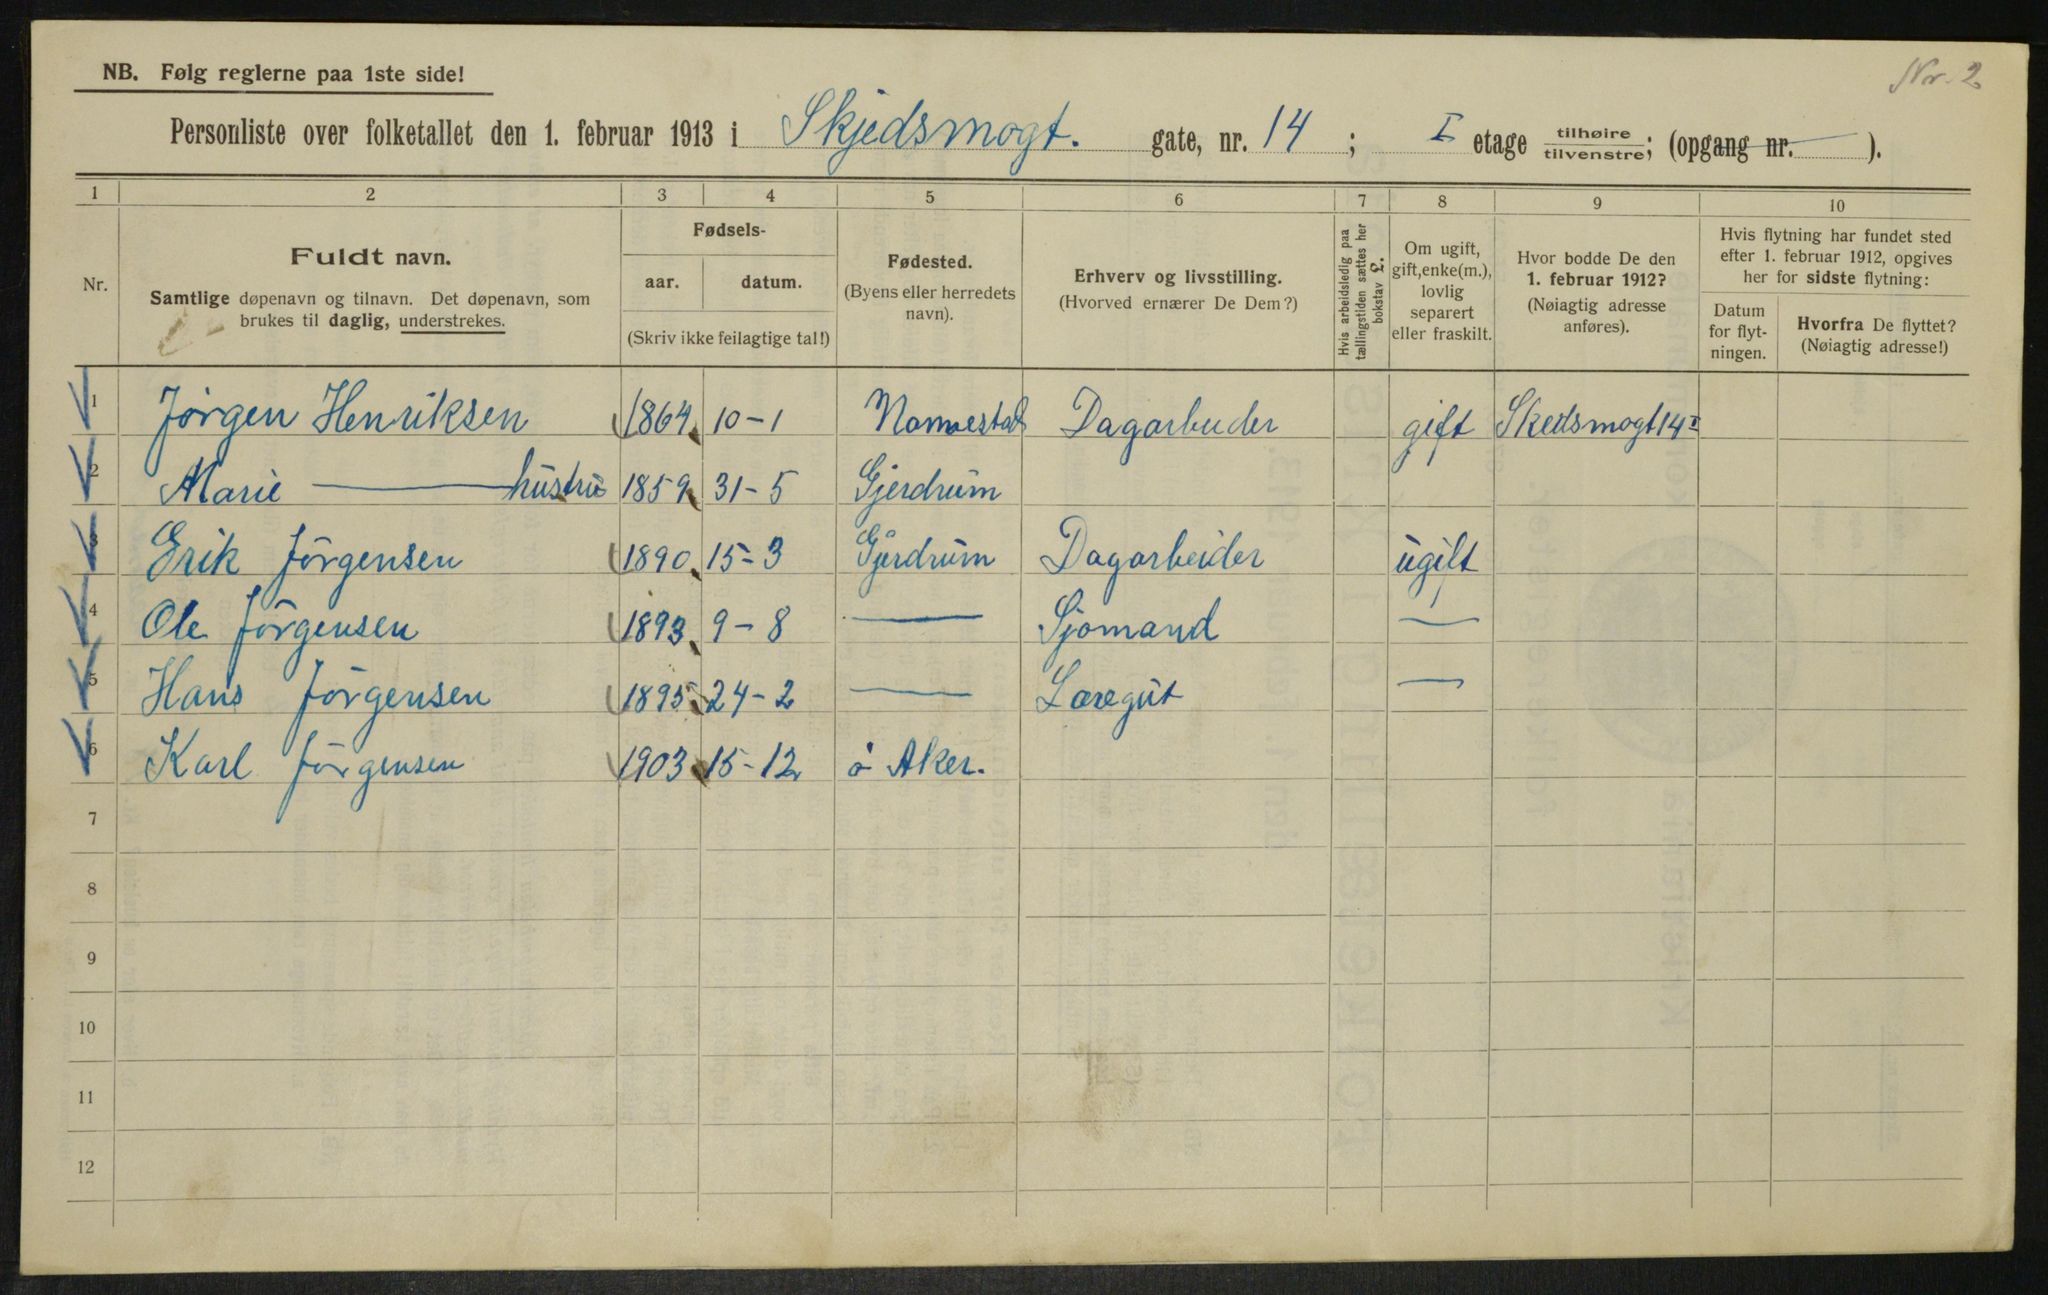 Nr. 2
NB. Følg reglerne paa 1ste side!
Personliste over folketallet den 1. februar 1913 i Skjedsmogt. gate, nr. 14 ; I etage tilhøire tilvenstre; (opgang nr. ).
1 2 3 4 5 6 7 8 9 10
Nr.
Fuldt navn.
Samtlige døpenavn og tilnavn. Det døpenavn, som
brukes til daglig, understrekes.
Fødsels-
aar. datum.
(Skriv ikke feilagtige tal!)
Fødested.
(Byens eller herredets
navn).
Erhverv og livsstilling.
(Hvorved ernærer De Dem?)
Hvis arbeidsledig paa
tællingstiden sættes her
bokstav L.
Om ugift,
gift, enke(m.),
lovlig
separert
eller fraskilt.
Hvor bodde De den
1. februar 1912?
(Nøiagtig adresse
anføres).
Hvis flytning har fundet sted
efter 1. februar 1912, opgives
her for sidste flytning:
Datum
for flyt-
ningen.
Hvorfra De flyttet?
(Nøiagtig adresse!)
1 Jørgen Henriksen 1864 10-1 Dagarbeider gift Skedsmogt 14 I
2 Marie — hustru 1859 31-5 Gjerdrum
3 Erik Jörgensen 1890 15-3 Gjerdrum Dagarbeider ugift
4 Ole Jörgensen 1893 9-8 — Sjømand —
5 Hans Jörgensen 1895 24-2 — Læregut —
6 Karl Jörgensen 1903 15-12 ø Aker.
7
8
9
10
11
12